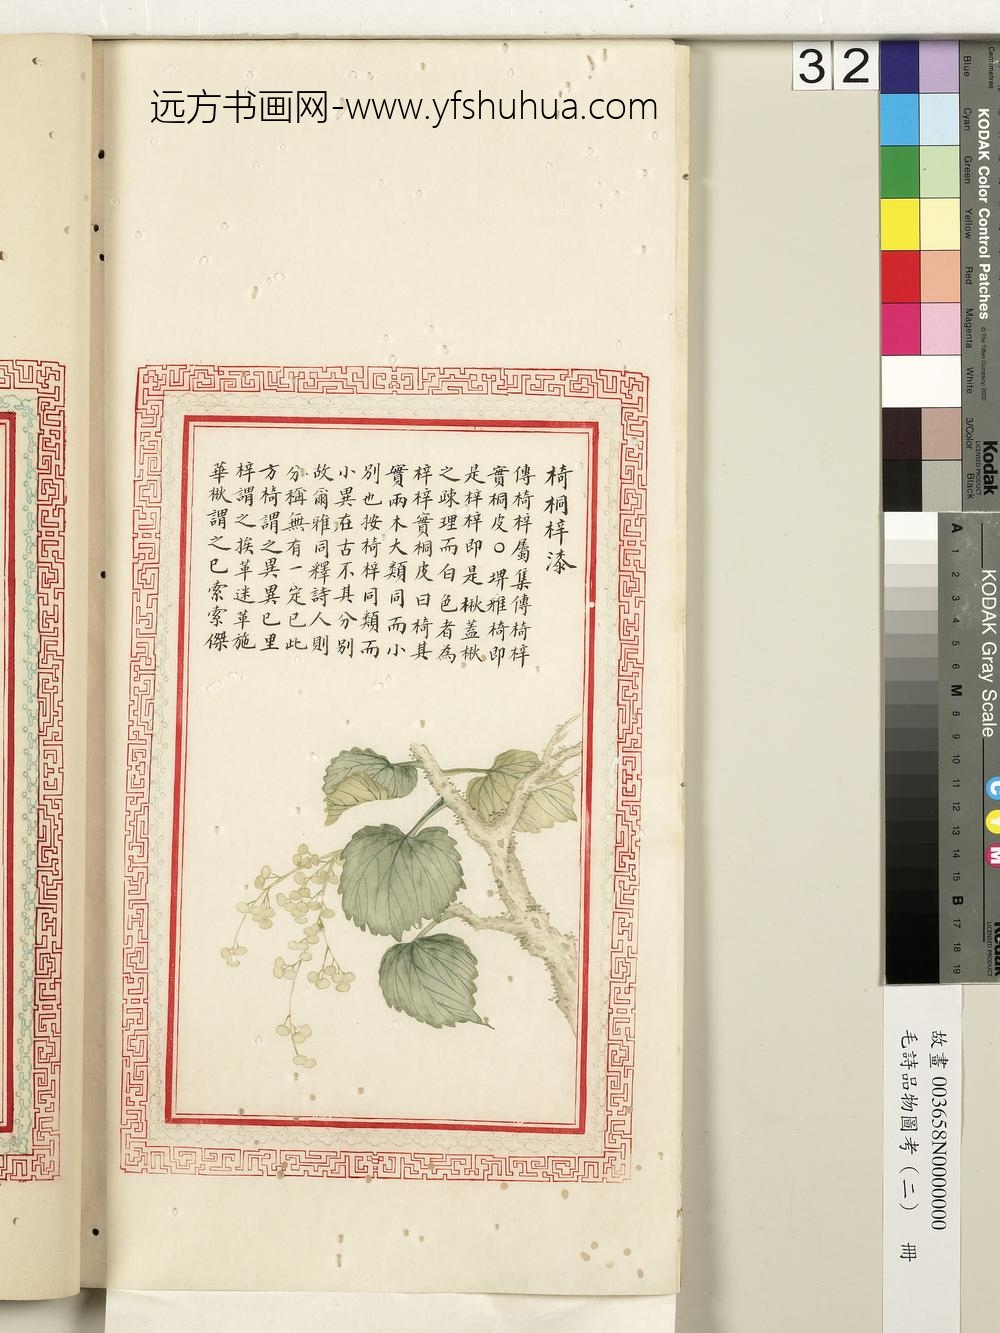 远方书画网-www.yfshuhua.com
32
椅桐梓漆
傳椅梓屬集傳椅梓
實桐皮○埤雅椅即
是梓梓即是楸蓋楸
之疎理而白色者為
梓梓實桐皮曰椅其
實兩木大類同而小
別也按椅梓同類而
小異在古不甚分別
故爾雅同釋詩人則
分稱無有一定已此
方椅謂之異異已里
梓謂之挨革迷革施
華楸謂之已索索傑
故畫 003658N0000000
毛詩品物圖考（二） 冊
Centimetres
KODAK Color Control Patches
© The Tiffen Company, 2000
Blue
Cyan
Green
Yellow
Red
Magenta
White
3/Color
Black
Kodak
LICENSED PRODUCT
KODAK Gray Scale
A 1 2 3 4 5 6 M 8 9 10 11 12 13 14 15 B 17 18 19
C
Y
M
Kodak
LICENSED PRODUCT